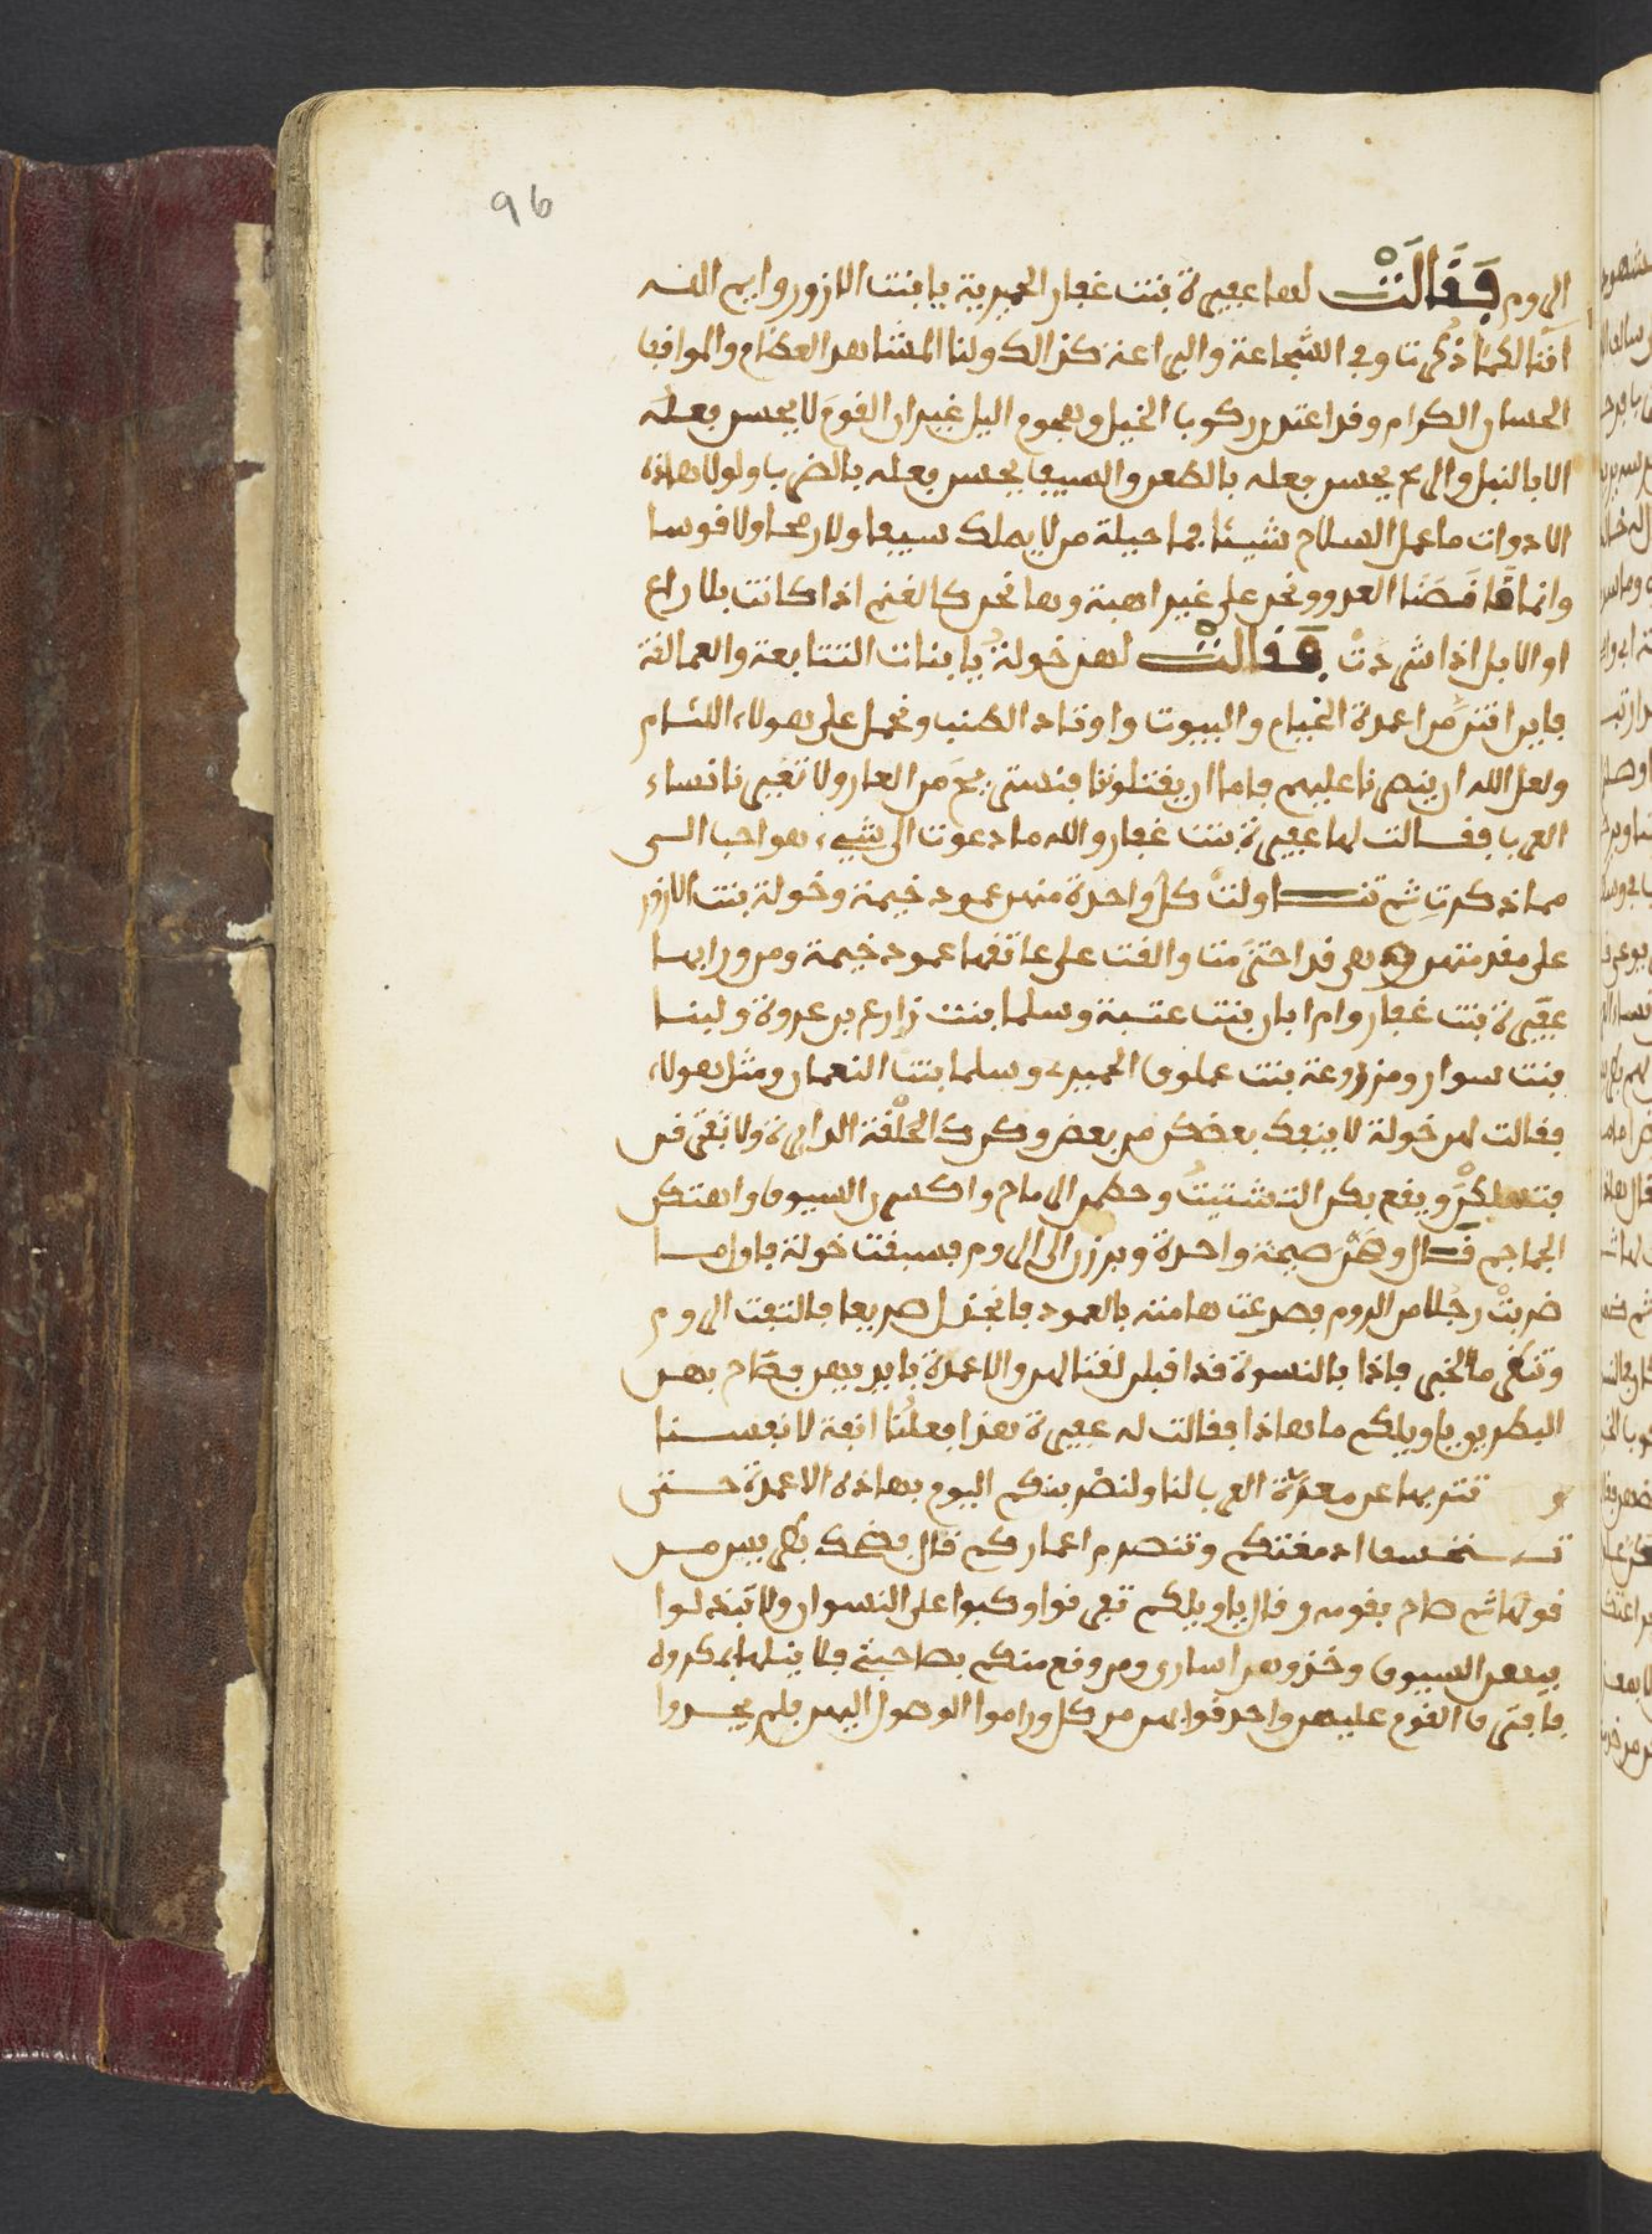 96
الروم فَقَالَتْ لها عفيرة بنت غفار الحميرية يا بنت الازور وايم الله
اننا لكما ذكرت وفي الشجاعة والبراعة كذالك ولنا المشاهد العظام والمواقف
الحسان الكرام وقد اعتدن ركوب الخيل وهجوم اليل غير ان القوم لا يحسن فعله
الا بالنبل والرمح يحسن فعله بالطعن والسيف يحسن فعله بالضرب ولولا هاذه
الادوات ما عمل السلاح شيئا فما حيلة من لا يملك سيفا ولا رمحا ولا قوسا
وانما قصدنا العدو ونحن على غير اهبة وها نحن كالغنم اذا كانت بلا راع
او الابل اذا شردت فقالت لهن خولة يا بنات التتابعة والعمالقة
فاين انتن من اعمدة الخيام والبيوت واوتاد الطنب ونحمل على هولاء اللئام
ولعل الله ان ينصرنا عليهم فاما ان يقتلونا فنستريح من العار ولا تعيرنا نساء
العرب فقالت لها عفيرة بنت غفار والله ما دعوت الى شيء هو احب الى
مما ذكرت ثم تناولت كل واحدة منهن عمود خيمة وخولة بنت الازور
على مقدمتهن وهي قد احتزمت والقت على عاتقها عمود خيمة ومن ورايها
عفيرة بنت غفار وام ابان بنت عتبة وسلما بنت زارع بن عروة ولبنا
بنت سوار ومزروعة بنت عملوق الحميرى وسلما بنت النعمان ومثل هولاء
فقالت لهن خولة لا ينفك بعضكن من بعض وكن كالحلقة الدايرة ولا تفترقن
فتهلكن ويقع بكن التشتيت وحطمن الرماح واكسرن السيوف واهتكن
الجماجم قال وهَمَّ صيحة واحدة وبرزن الى الروم فسبقت خولة فاول ما
ضربت رجلا من الروم فصرعت هامته بالعمود فانجدل صريعا فالتفت الروم
وتنظر ما الخبر فاذا بالنسوة قد اقبلن لقتالهم والاعمدة بايديهن فصاح بهن
البطريق يا ويلكم ما هاذا فقالت له عفيرة هذا فعلنا انفة لانفسنا
و نتر بها عن معرة العرب لنا ولنضربنكم اليوم بهاذه الاعمدة حتى
تنخسف ادمغتكم وتنصرم اعماركم قال فضحك بطريس من
قولها ثم صاح بقومه وقال يا ويلكم تفرقوا وكبوا على النسوان ولا تبذلوا
فيهن السيوف وخذوهن اسارى ومن وقع منكم بصاحبة فلا ينلها بمكروه
فافترق القوم عليهن واحدقوا بهن من كل وراموا الوصول اليهن فلم يجدوا